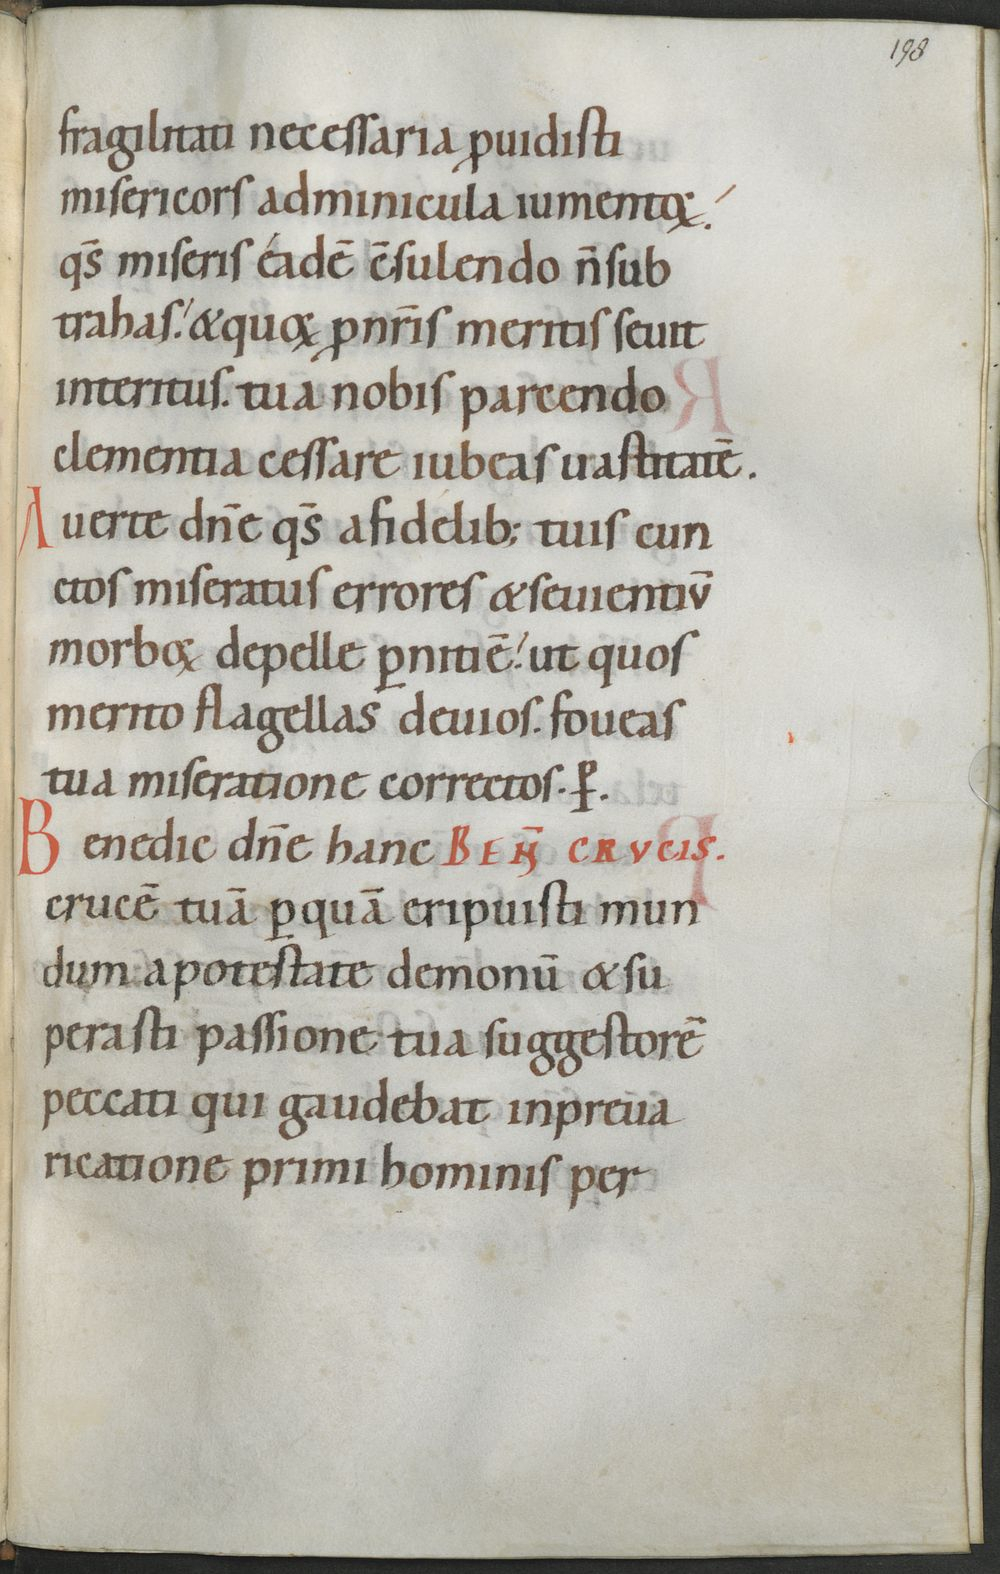 198
fragilitati necessaria ꝓuidisti
misericors adminicula iumentoꝝ.
q̄s miseris eadē c̄sulendo n̄ sub
trahas. & quoꝝ ꝓ nr̄is meritis seuit
interitus. tua nobis parcendo
clementia cessare iubeas uastitatē.
Auerte dn̄e q̄s a fidelib; tuis cun
ctos miseratus errores & seuientiū
morboꝝ depelle ꝑnitiē. ut quos
merito flagellas deuios. foueas
tua miseratione correctos. P̄.
Benedic dn̄e hanc BEN̄ CRVCIS.
crucē tuā ꝑ quā eripuisti mun
dum a potestate demonū & su
perasti passione tua suggestorē
peccati qui gaudebat in preua
ricatione primi hominis per